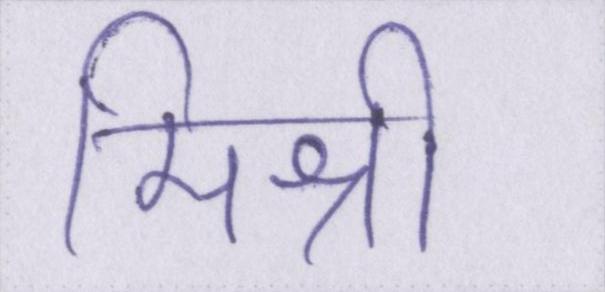 मिश्री